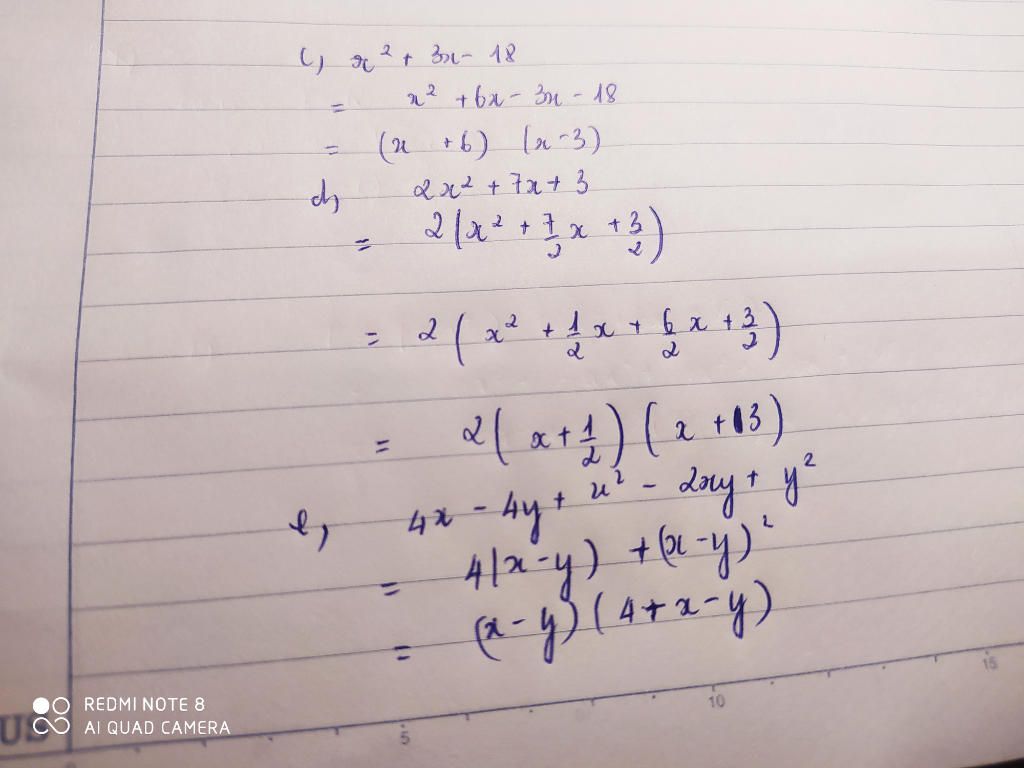 c, x² + 3x - 18
= x² + 6x - 3x - 18
= (x + 6) (x - 3)
d, 2x² + 7x + 3
= 2(x² + 7/2 x + 3/2)
= 2(x² + 1/2 x + 6/2 x + 3/2)
= 2(x + 1/2) (x + 3)
e, 4x - 4y + x² - 2xy + y²
= 4(x - y) + (x - y)²
= (x - y) (4 + x - y)
5 10 15
US
REDMI NOTE 8
AI QUAD CAMERA